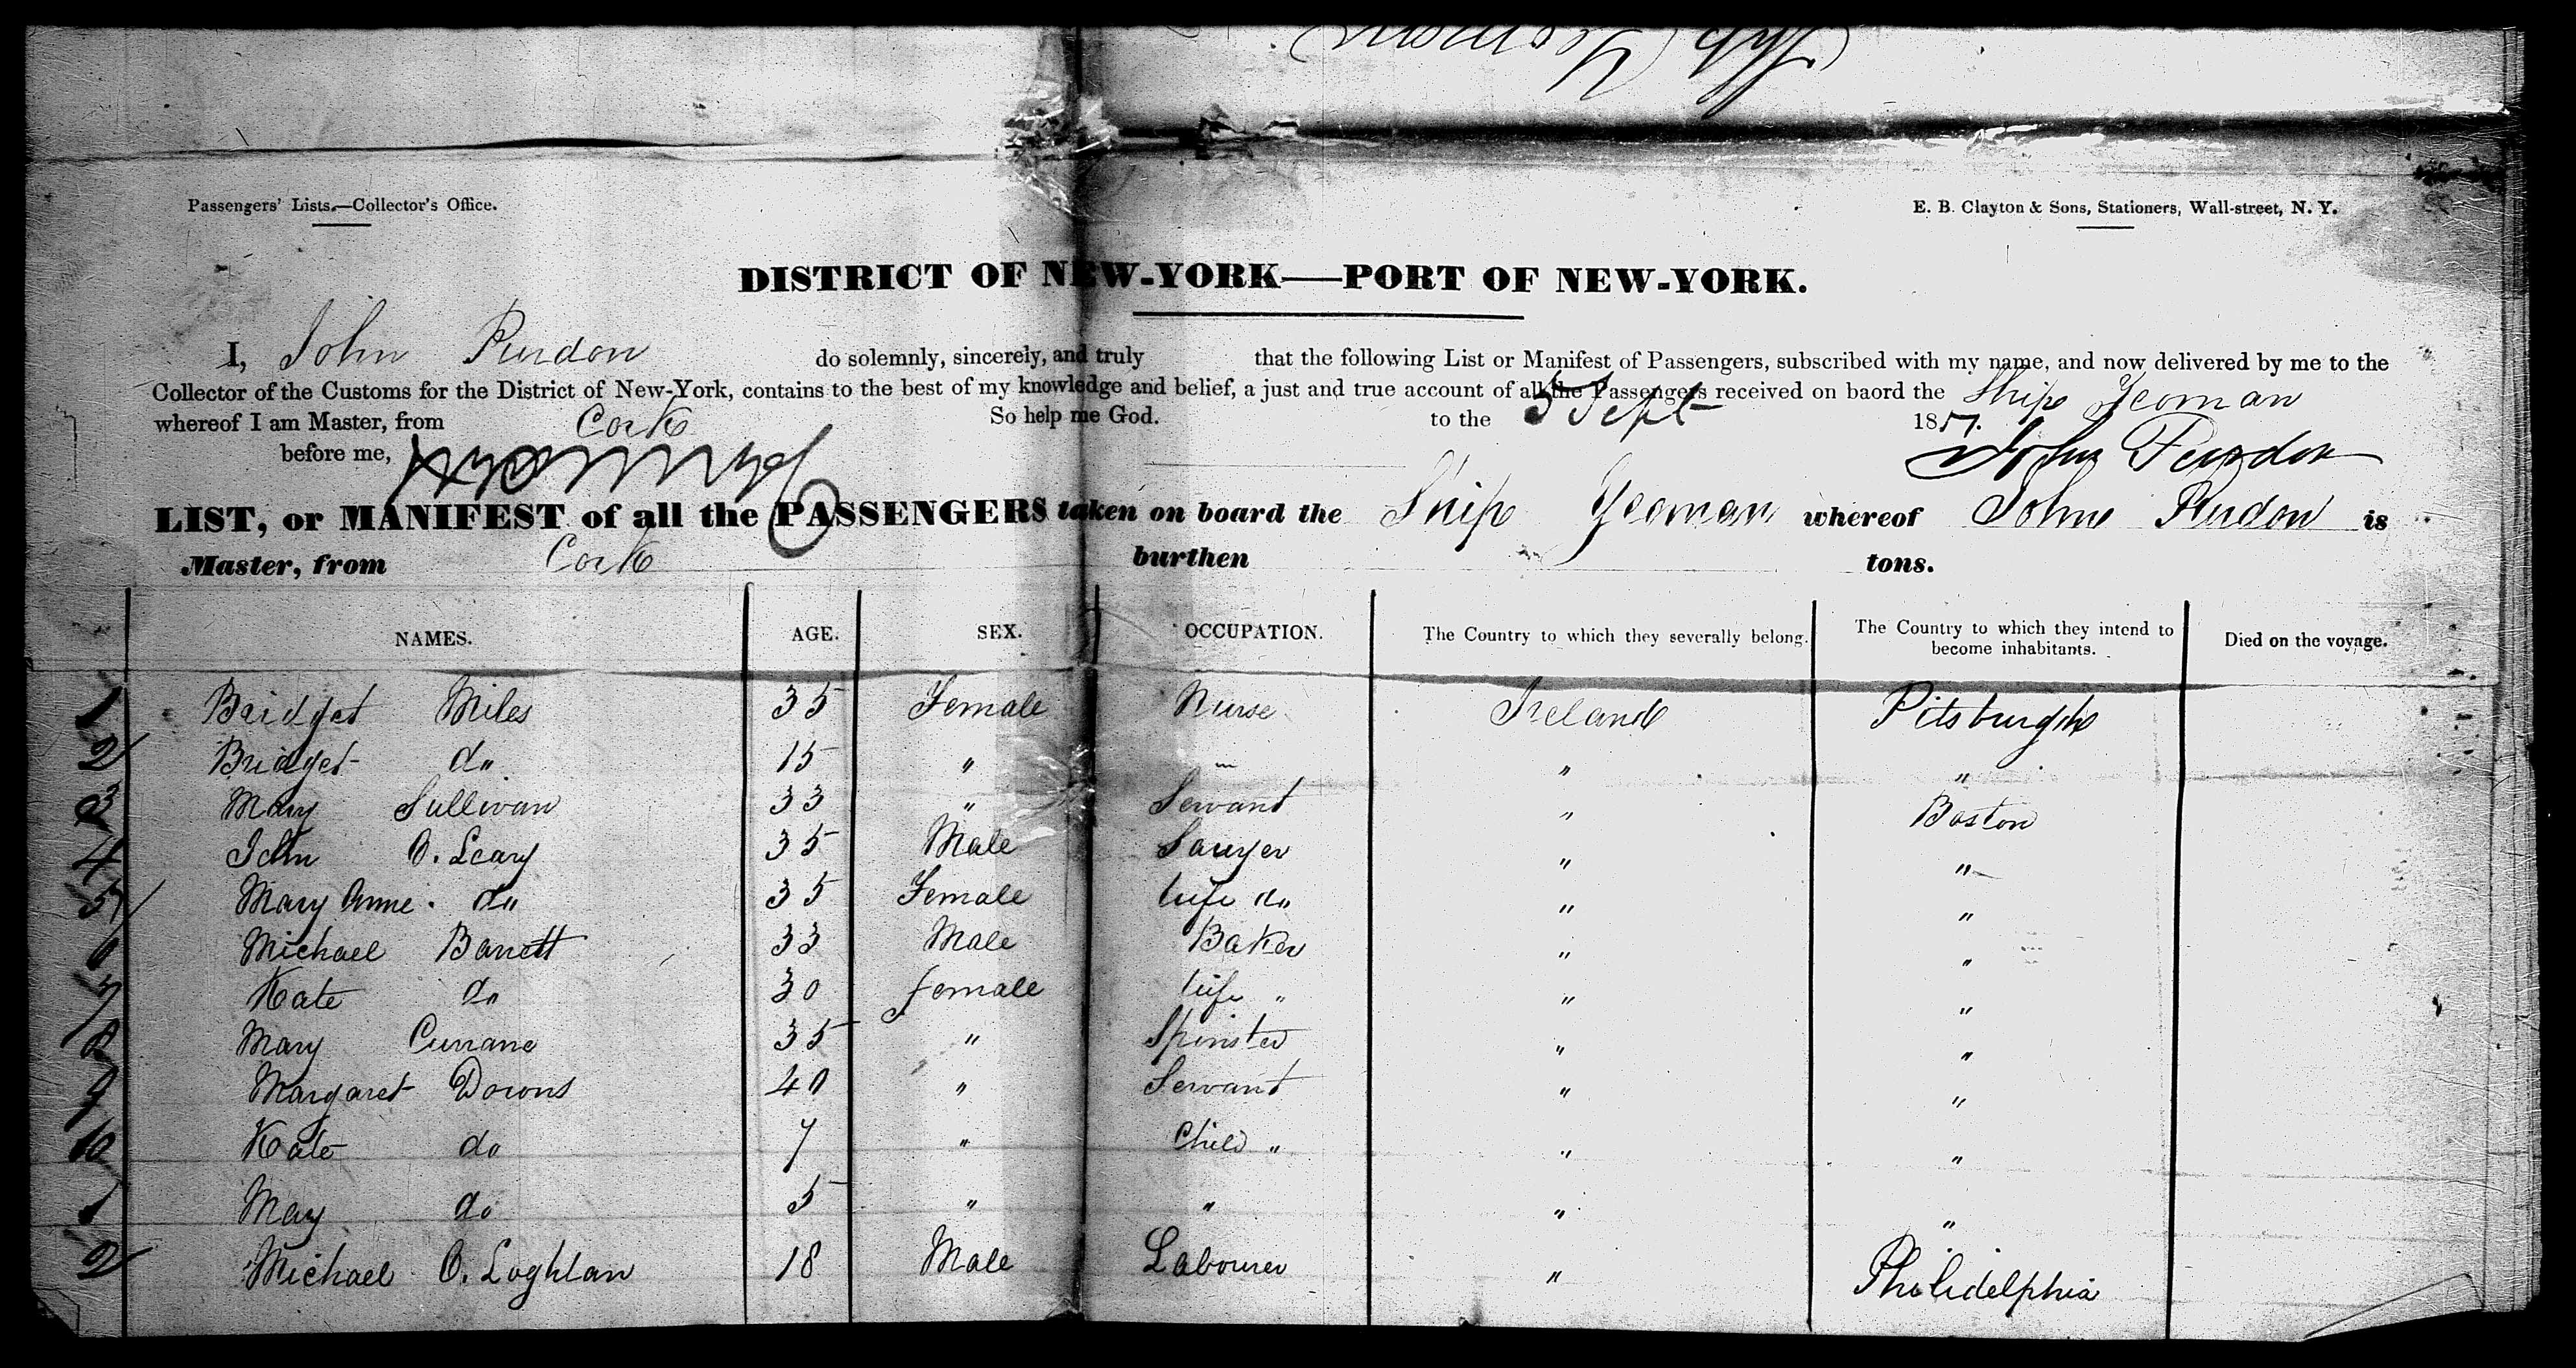 Passengers' Lists.—Collector's Office.
E. B. Clayton & Sons, Stationers, Wall-street, N. Y.
DISTRICT OF NEW-YORK—PORT OF NEW-YORK.
I, John Purdon do solemnly, sincerely, and truly that the following List or Manifest of Passengers, subscribed with my name, and now delivered by me to the
Collector of the Customs for the District of New-York, contains to the best of my knowledge and belief, a just and true account of all the Passengers received on baord the Ship Yeoman
whereof I am Master, from Cork to the 3 Sept 1851.
So help me God.
John Purdon
before me,
LIST, or MANIFEST of all the PASSENGERS taken on board the Ship Yeoman whereof John Purdon is
Master, from Cork burthen tons.
NAMES. AGE. SEX. OCCUPATION. The Country to which they severally belong. The Country to which they intend to become inhabitants. Died on the voyage.
1 Bridget Miles 35 Female Nurse Ireland Pitsburgh
2 Bridget do 15 " " " "
3 Mary Sullivan 33 " Servant " Boston
4 John O. Leary 35 Male Sawyer " "
5 Mary Anne. do 35 Female wife do " "
6 Michael Barrett 33 Male Baker " "
7 Kate do 30 female wife " " "
8 Mary Currane 35 " Spinster " "
9 Margaret Downs 40 " Servant " "
10 Kate do 7 " Child " " "
1 May do 5 " " " "
2 Michael O. Loghlan 18 Male Labourer " Philidelphia